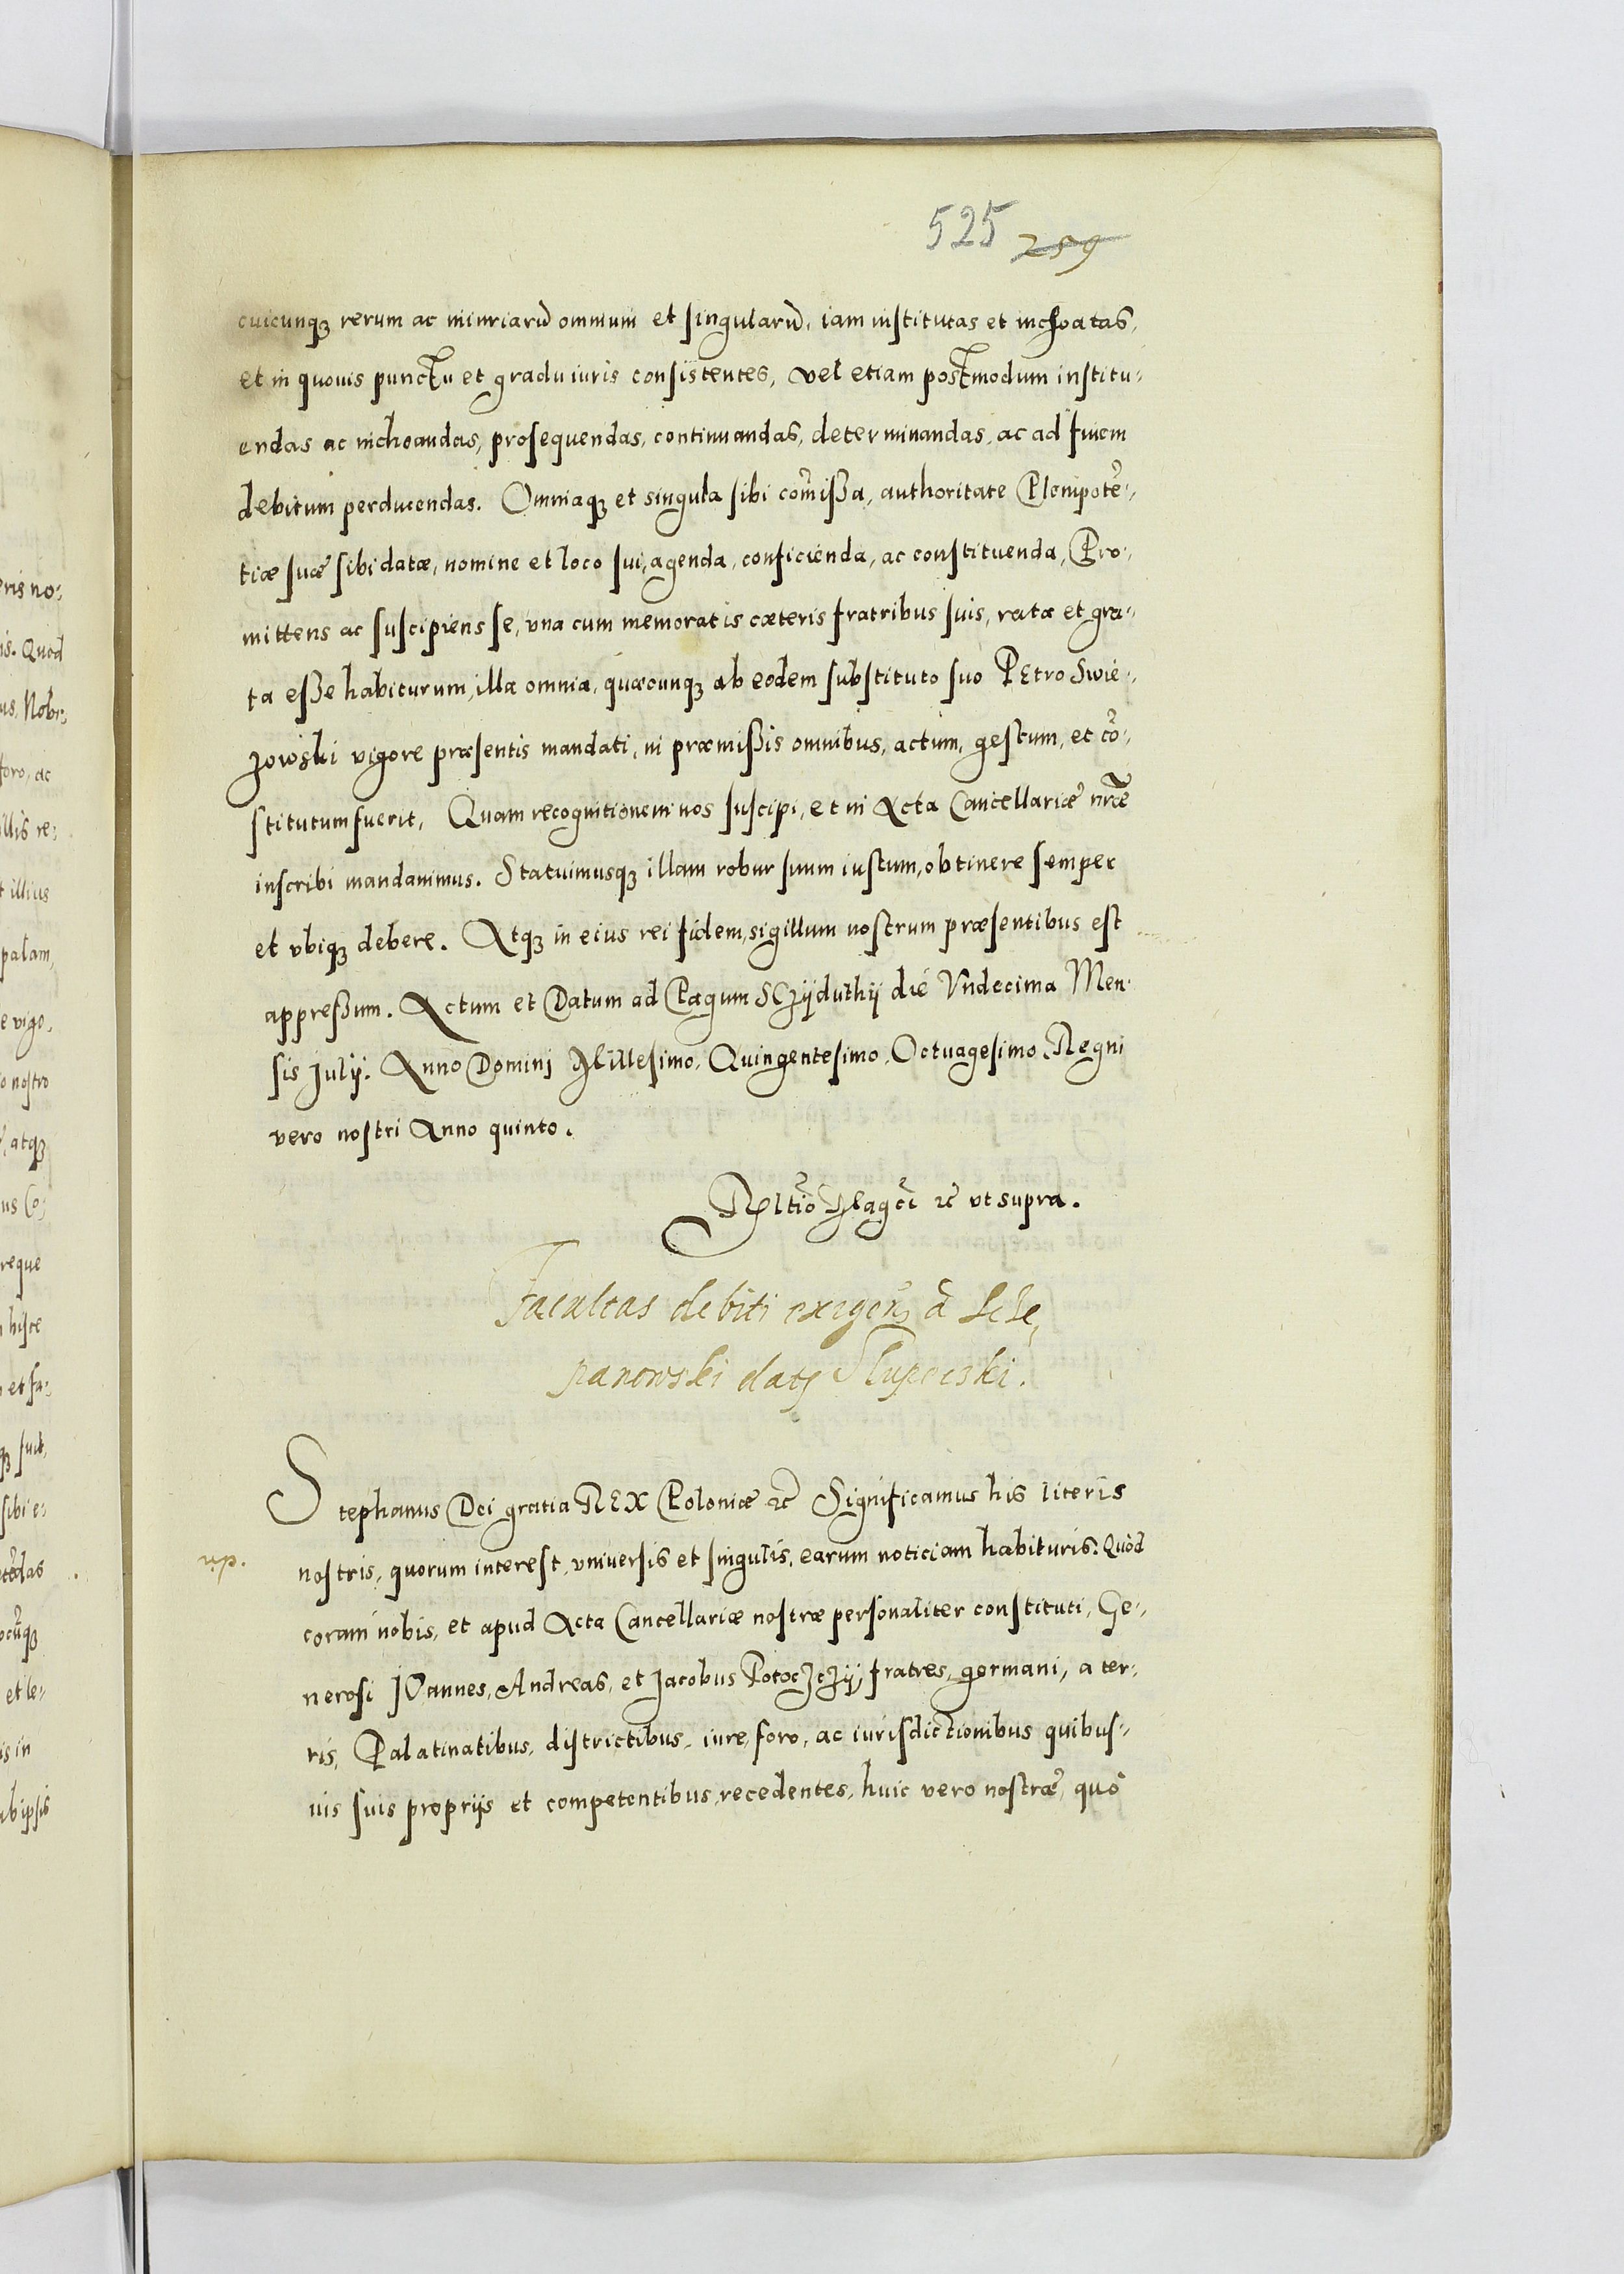 525 259
cuicunqȝ rerum ac iniuriarũ omnium et singularũ, iam institutas et inchoatas,
et in quouis punctu et gradu iuris consistentes, vel etiam postmodum institu-
endas ac inchoandas, prosequendas, continuandas, determinandas, ac ad finem
debitum perducendas. Omniaqȝ et singula sibi cõmißa, authoritate Plenipotẽ-
tiæ suæ sibi datæ, nomine et loco sui, agenda, conficienda, ac constituenda, Pro-
mittens ac suscipiens se, vna cum memoratis cæteris fratribus suis, rata et gra-
ta eße habiturum, illa omnia, quæcunqȝ ab eodem substituto suo PEtro Swie-
zowski vigore præsentis mandati, in præmißis omnibus, actum, gestum, et cõ-
stitutum fuerit, Quam recognitionem nos suscipi, et in Acta Cancellariæ nrãe
inscribi mandauimus. Statuimusqȝ illam robur suum iustum, obtinere semper
et vbiqȝ debere. Atqȝ in eius rei fidem, sigillum nostrum præsentibus est
appreßum. Actum et Datum ad Pagum SCzÿduthÿ die Vndecima Men-
sis Julÿ. Anno Dominj Millesimo, Quingentesimo, Octuagesimo. Regni
vero nostri Anno quinto.
Rltiõ Magci ꝛc vt supra.
Facultas debiti exigen a Scze
panowski dats Slupecski.
Stephanus Dei gratia REX Poloniæ ꝛc Significamus his literis
np. nostris, quorum interest, vniuersis et singulis, earum noticiam habituris. Quòd
coram nobis, et apud Acta Cancellariæ nostræ personaliter constituti, Ge-
nerosi JOannes, Andreas, et Jacobus Potoczczÿ, fratres germani, a ter-
ris, Palatinatibus, districtibus, iure, foro, ac iurisdictionibus quibus-
uis suis proprijs et competentibus, recedentes, huic vero nostræ, quò